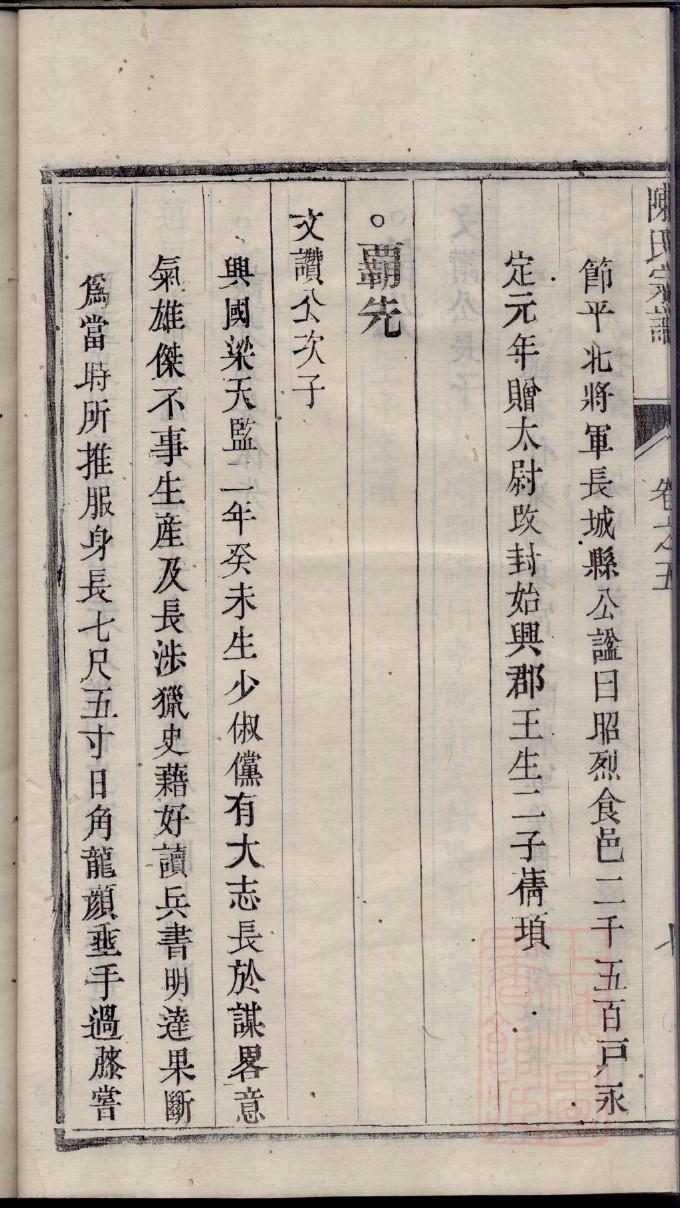 陳氏宗譜 卷之五
節平北將軍長城縣公謚曰昭烈食邑二千五百戸永
定元年贈太尉改封始興郡王生二子蒨頊
。覇先
文讚公次子
興國梁天監二年癸未生少俶儻有大志長於謀畧意
氣雄傑不事生産及長涉獵史藉好讀兵書明逹果斷
爲當時所推服身長七尺五寸日角龍顔垂手過膝嘗